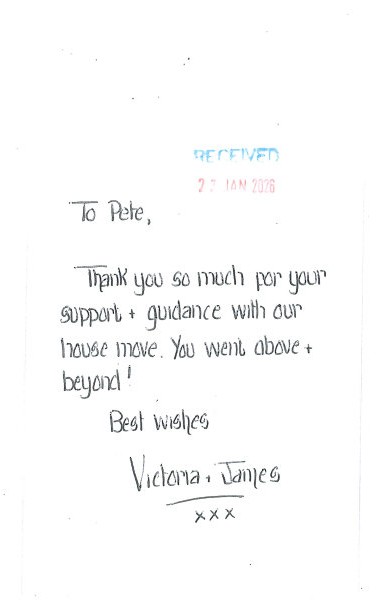 RECEIVED
27 JAN 2026
To Pete,
Thank you so much for your
support + guidance with our
house move. You went above +
beyond!
Best wishes
Victoria + James
xxx